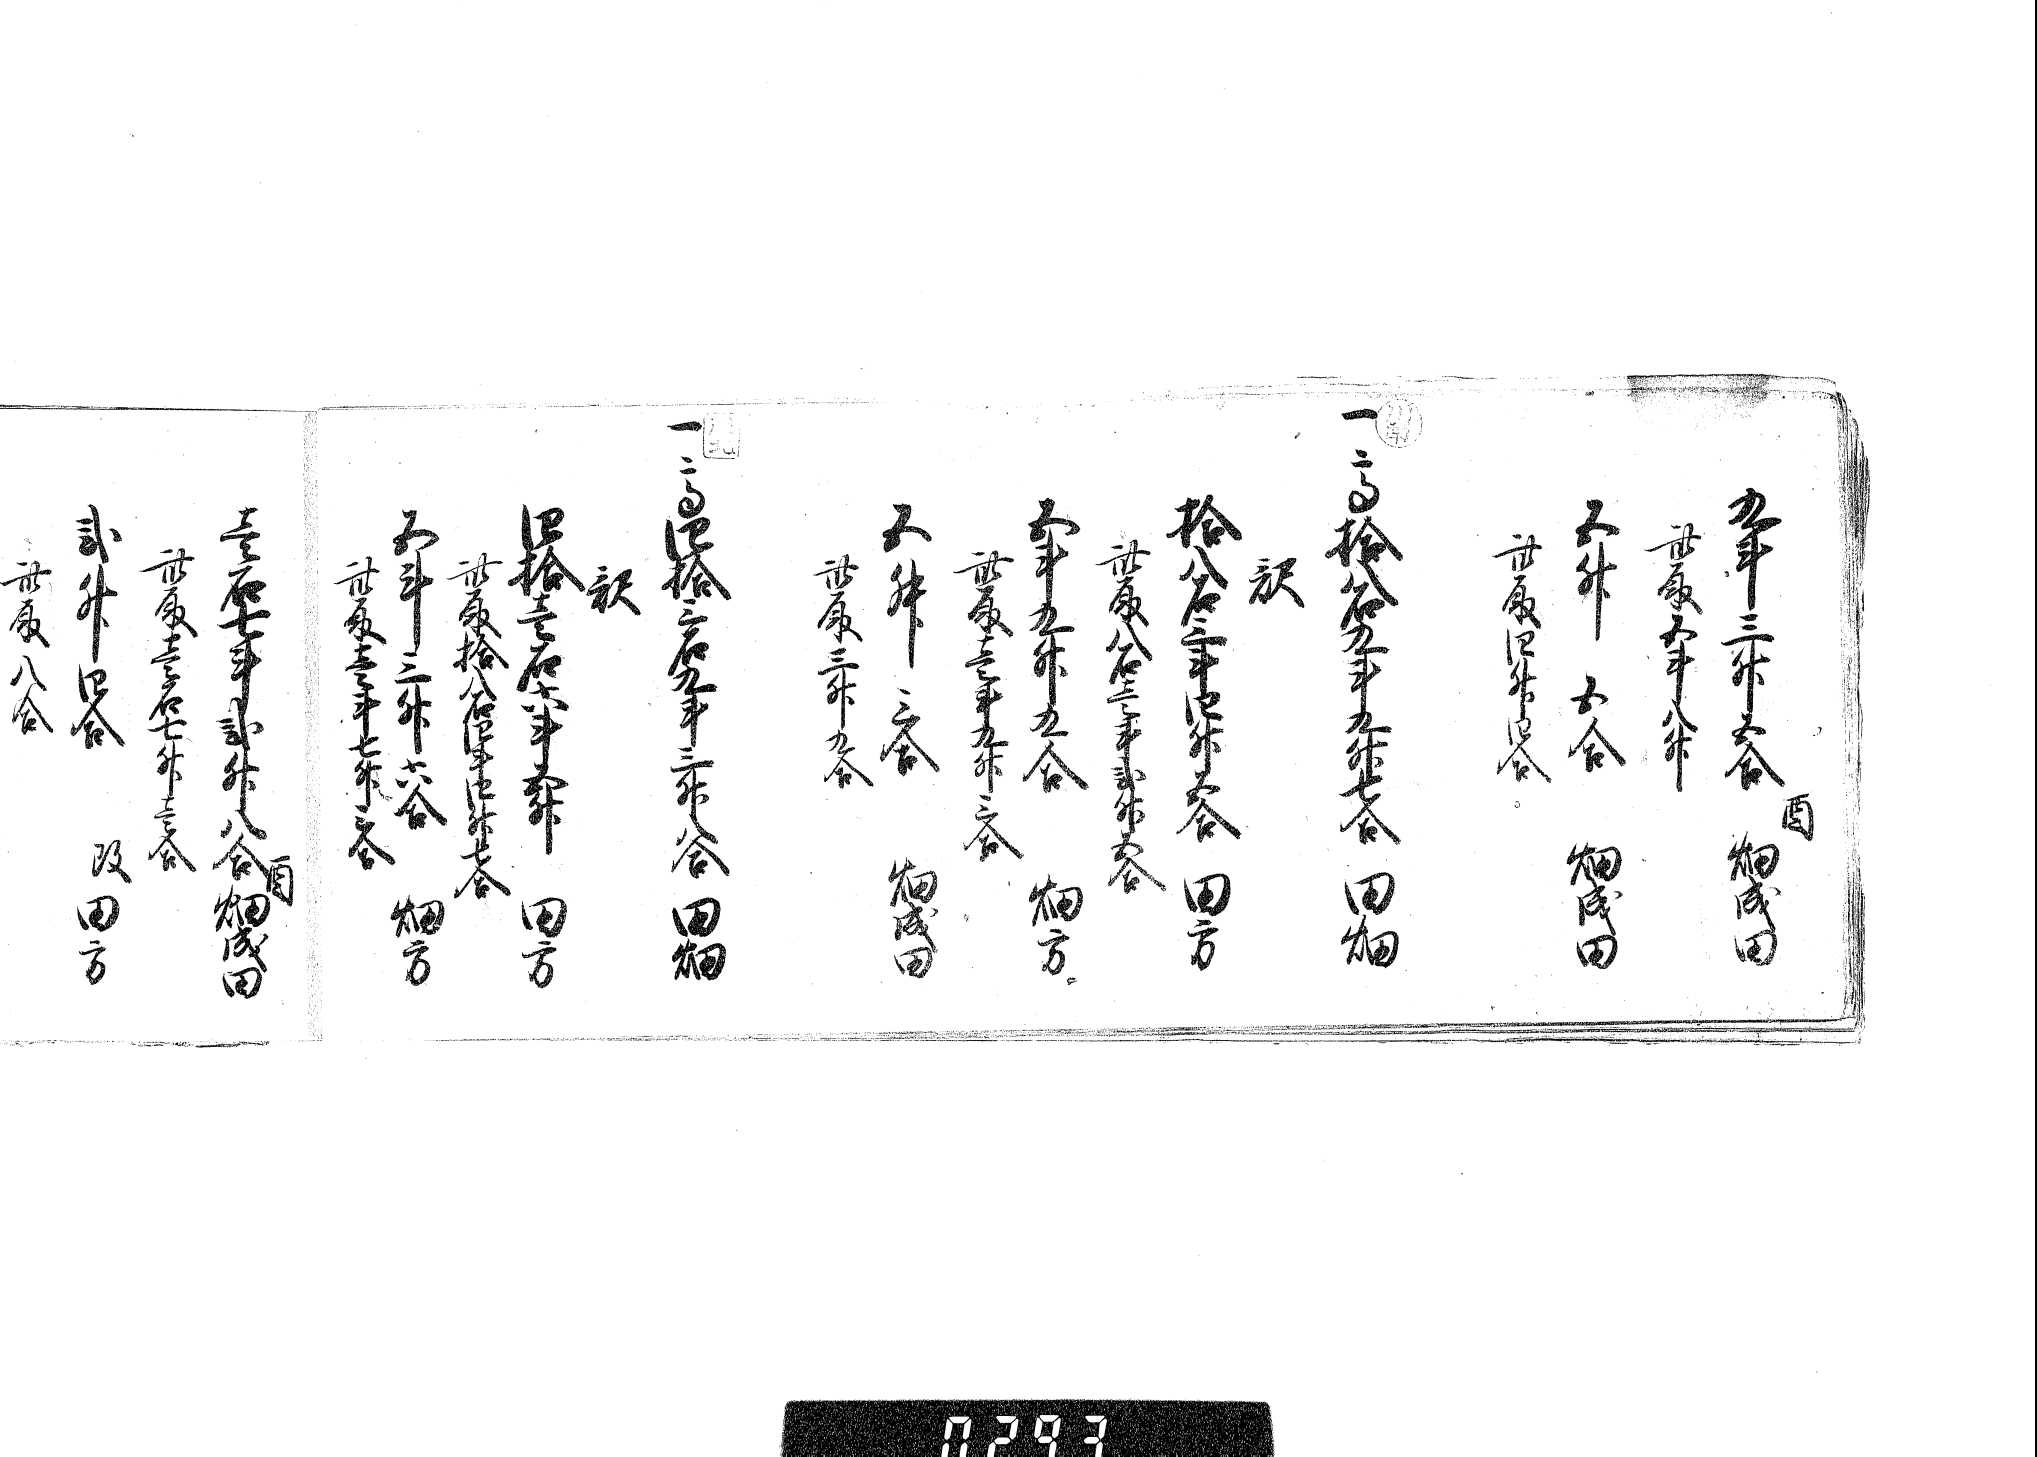 九斗三升五合 酉畑成田
此取五斗八升
五升五合 畑成田
此取四升四合
一高拾八石九斗九升七合 田畑
訳
拾八石三斗四升五合 田方
此取八石壱斗弐升五合
五斗九升九合 畑方
此取壱斗九升三合
五升三合 畑成田
此取三升九合
一高四拾三石九斗三升八合 田畑
訳
四拾壱石六斗五升 田方
此取拾八石四斗四升七合
五斗三升六合 畑方
此取壱斗七升三合
壱石七斗弐升八合 酉畑成田
此取壱石七升壱合
弐升四合 改田方
此取八合
0293